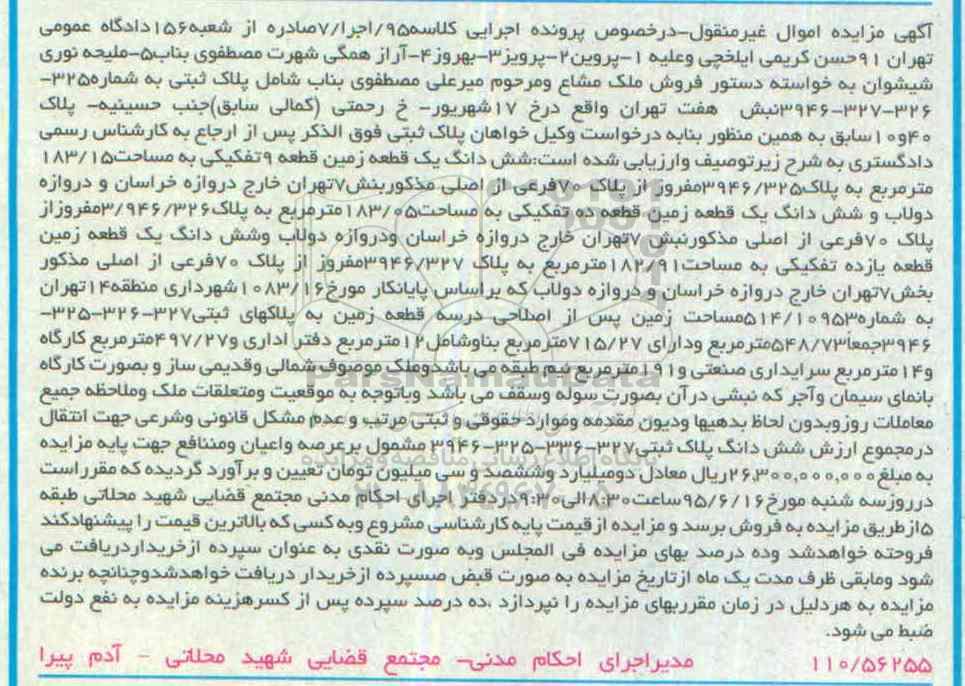 آگهی مزایده اموال غیرمنقول-درخصوص پرونده اجرایی کلاسه۹۵/اجرا/۷صادره از شعبه۱۵۶دادگاه عمومی
تهران ۹۱حسن کریمی ایلخچی وعلیه ۱-پروین۲-پرویز۳-بهروز۴-آراز همگی شهرت مصطفوی بناب۵-ملیحه نوری
شیشوان به خواسته دستور فروش ملک مشاع ومرحوم میرعلی مصطفوی بناب شامل پلاک ثبتی به شماره۳۲۵-
۳۲۶-۳۲۷-۳۹۴۶نبش هفت تهران واقع درخ ۱۷شهریور- خ رحمتی (کمالی سابق)جنب حسینیه- پلاک
۴۰و۱۰سابق به همین منظور بنابه درخواست وکیل خواهان پلاک ثبتی فوق الذکر پس از ارجاع به کارشناس رسمی
دادگستری به شرح زیرتوصیف وارزیابی شده است:شش دانگ یک قطعه زمین قطعه ۹تفکیکی به مساحت۱۸۳/۱۵
مترمربع به پلاک۳۹۴۶/۳۲۵مفروز از پلاک ۷۰فرعی از اصلی مذکوربنش۷تهران خارج دروازه خراسان و دروازه
دولاب و شش دانگ یک قطعه زمین قطعه ده تفکیکی به مساحت۱۸۳/۰۵مترمربع به پلاک۳/۹۴۶/۳۲۶مفروزاز
پلاک ۷۰فرعی از اصلی مذکورنبش ۷تهران خارج دروازه خراسان ودروازه دولاب وشش دانگ یک قطعه زمین
قطعه یازده تفکیکی به مساحت۱۸۲/۹۱مترمربع به پلاک ۳۹۴۶/۳۲۷مفروز از پلاک ۷۰فرعی از اصلی مذکور
بخش۷تهران خارج دروازه خراسان و دروازه دولاب که براساس پایانکار مورخ۱۰۸۳/۱۶شهرداری منطقه۱۴تهران
به شماره۵۱۴/۱۰۹۵۳مساحت زمین پس از اصلاحی درسه قطعه زمین به پلاکهای ثبتی۳۲۷-۳۲۶-۳۲۵-
۳۹۴۶جمعا۵۴۸/۷۳مترمربع ودارای ۷۱۵/۲۷مترمربع بناوشامل۱۲مترمربع دفتر اداری و۴۹۷/۲۷مترمربع کارگاه
و۱۴مترمربع سرایداری صنعتی و۱۹۱مترمربع نیم طبقه می باشدوملک موصوف شمالی وقدیمی ساز و بصورت کارگاه
بانمای سیمان وآجر که نبشی درآن بصورت سوله وسقف می باشد وباتوجه به موقعیت ومتعلقات ملک وملاحظه جمیع
معاملات روزوبدون لحاظ بدهیها ودیون مقدمه وموارد حقوقی و ثبتی مرتب و عدم مشکل قانونی وشرعی جهت انتقال
درمجموع ارزش شش دانگ پلاک ثبتی۳۲۷-۳۳۶-۳۲۵-۳۹۴۶ مشمول برعرصه واعیان ومنافع جهت پایه مزایده
به مبلغ۲۶,۳۰۰,۰۰۰,۰۰۰ریال معادل دومیلیارد وششصد و سی میلیون تومان تعیین و برآورد گردیده که مقرراست
درروزسه شنبه مورخ۹۵/۶/۱۶ساعت۸:۳۰الی۹:۳۰دردفتر اجرای احکام مدنی مجتمع قضایی شهید محلاتی طبقه
۵ازطریق مزایده به فروش برسد و مزایده از قیمت پایه کارشناسی مشروع وبه کسی که بالاترین قیمت را پیشنهادکند
فروحته خواهدشد وده درصد بهای مزایده فی المجلس وبه صورت نقدی به عنوان سپرده ازخریداردریافت می
شود ومابقی ظرف مدت یک ماه ازتاریخ مزایده به صورت قبض مسپرده ازخریدار دریافت خواهدشدوچنانچه برنده
مزایده به هردلیل در زمان مقرربهای مزایده را نپردازد ،ده درصد سپرده پس از کسرهزینه مزایده به نفع دولت
ضبط می شود.
۱۱۰/۵۶۲۵۵ مدیراجرای احکام مدنی- مجتمع قضایی شهید محلاتی - آدم پیرا
ParsNamadData